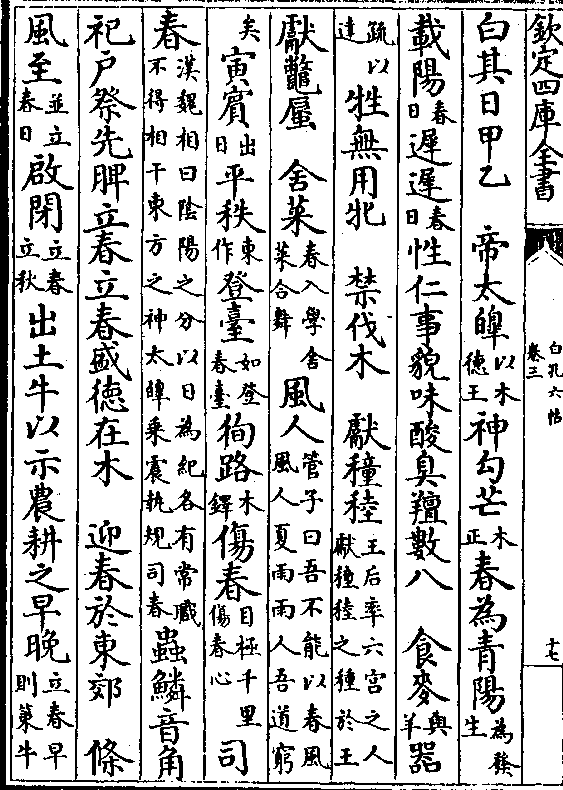 欽定四庫全書
白孔六帖
卷三
十七
白其日甲乙　帝太皥以木德王神勾芒木正春為青陽為發生
載陽春日遲遲春日性仁事貌味酸臭羶數八　食麥與羊器
疏以達牲無用牝　禁伐木　獻穜稑王后率六宮之人獻穜稑之種於王
獻鼈蜃　舍菜春入學舍菜合舞風人管子曰吾不能以春風風人夏雨雨人吾道窮
矣寅賓出日平秩東作登臺如登春臺徇路木鐸傷春目極千里傷春心司
春漢魏相曰陰陽之分以日為紀各有常職不得相干東方之神太皥乘震執規司春蟲鱗音角
祀戶祭先脾立春立春盛德在木　迎春於東郊　條
風至並立春日啟閉立春立秋出土牛以示農耕之早晚立春早則策牛